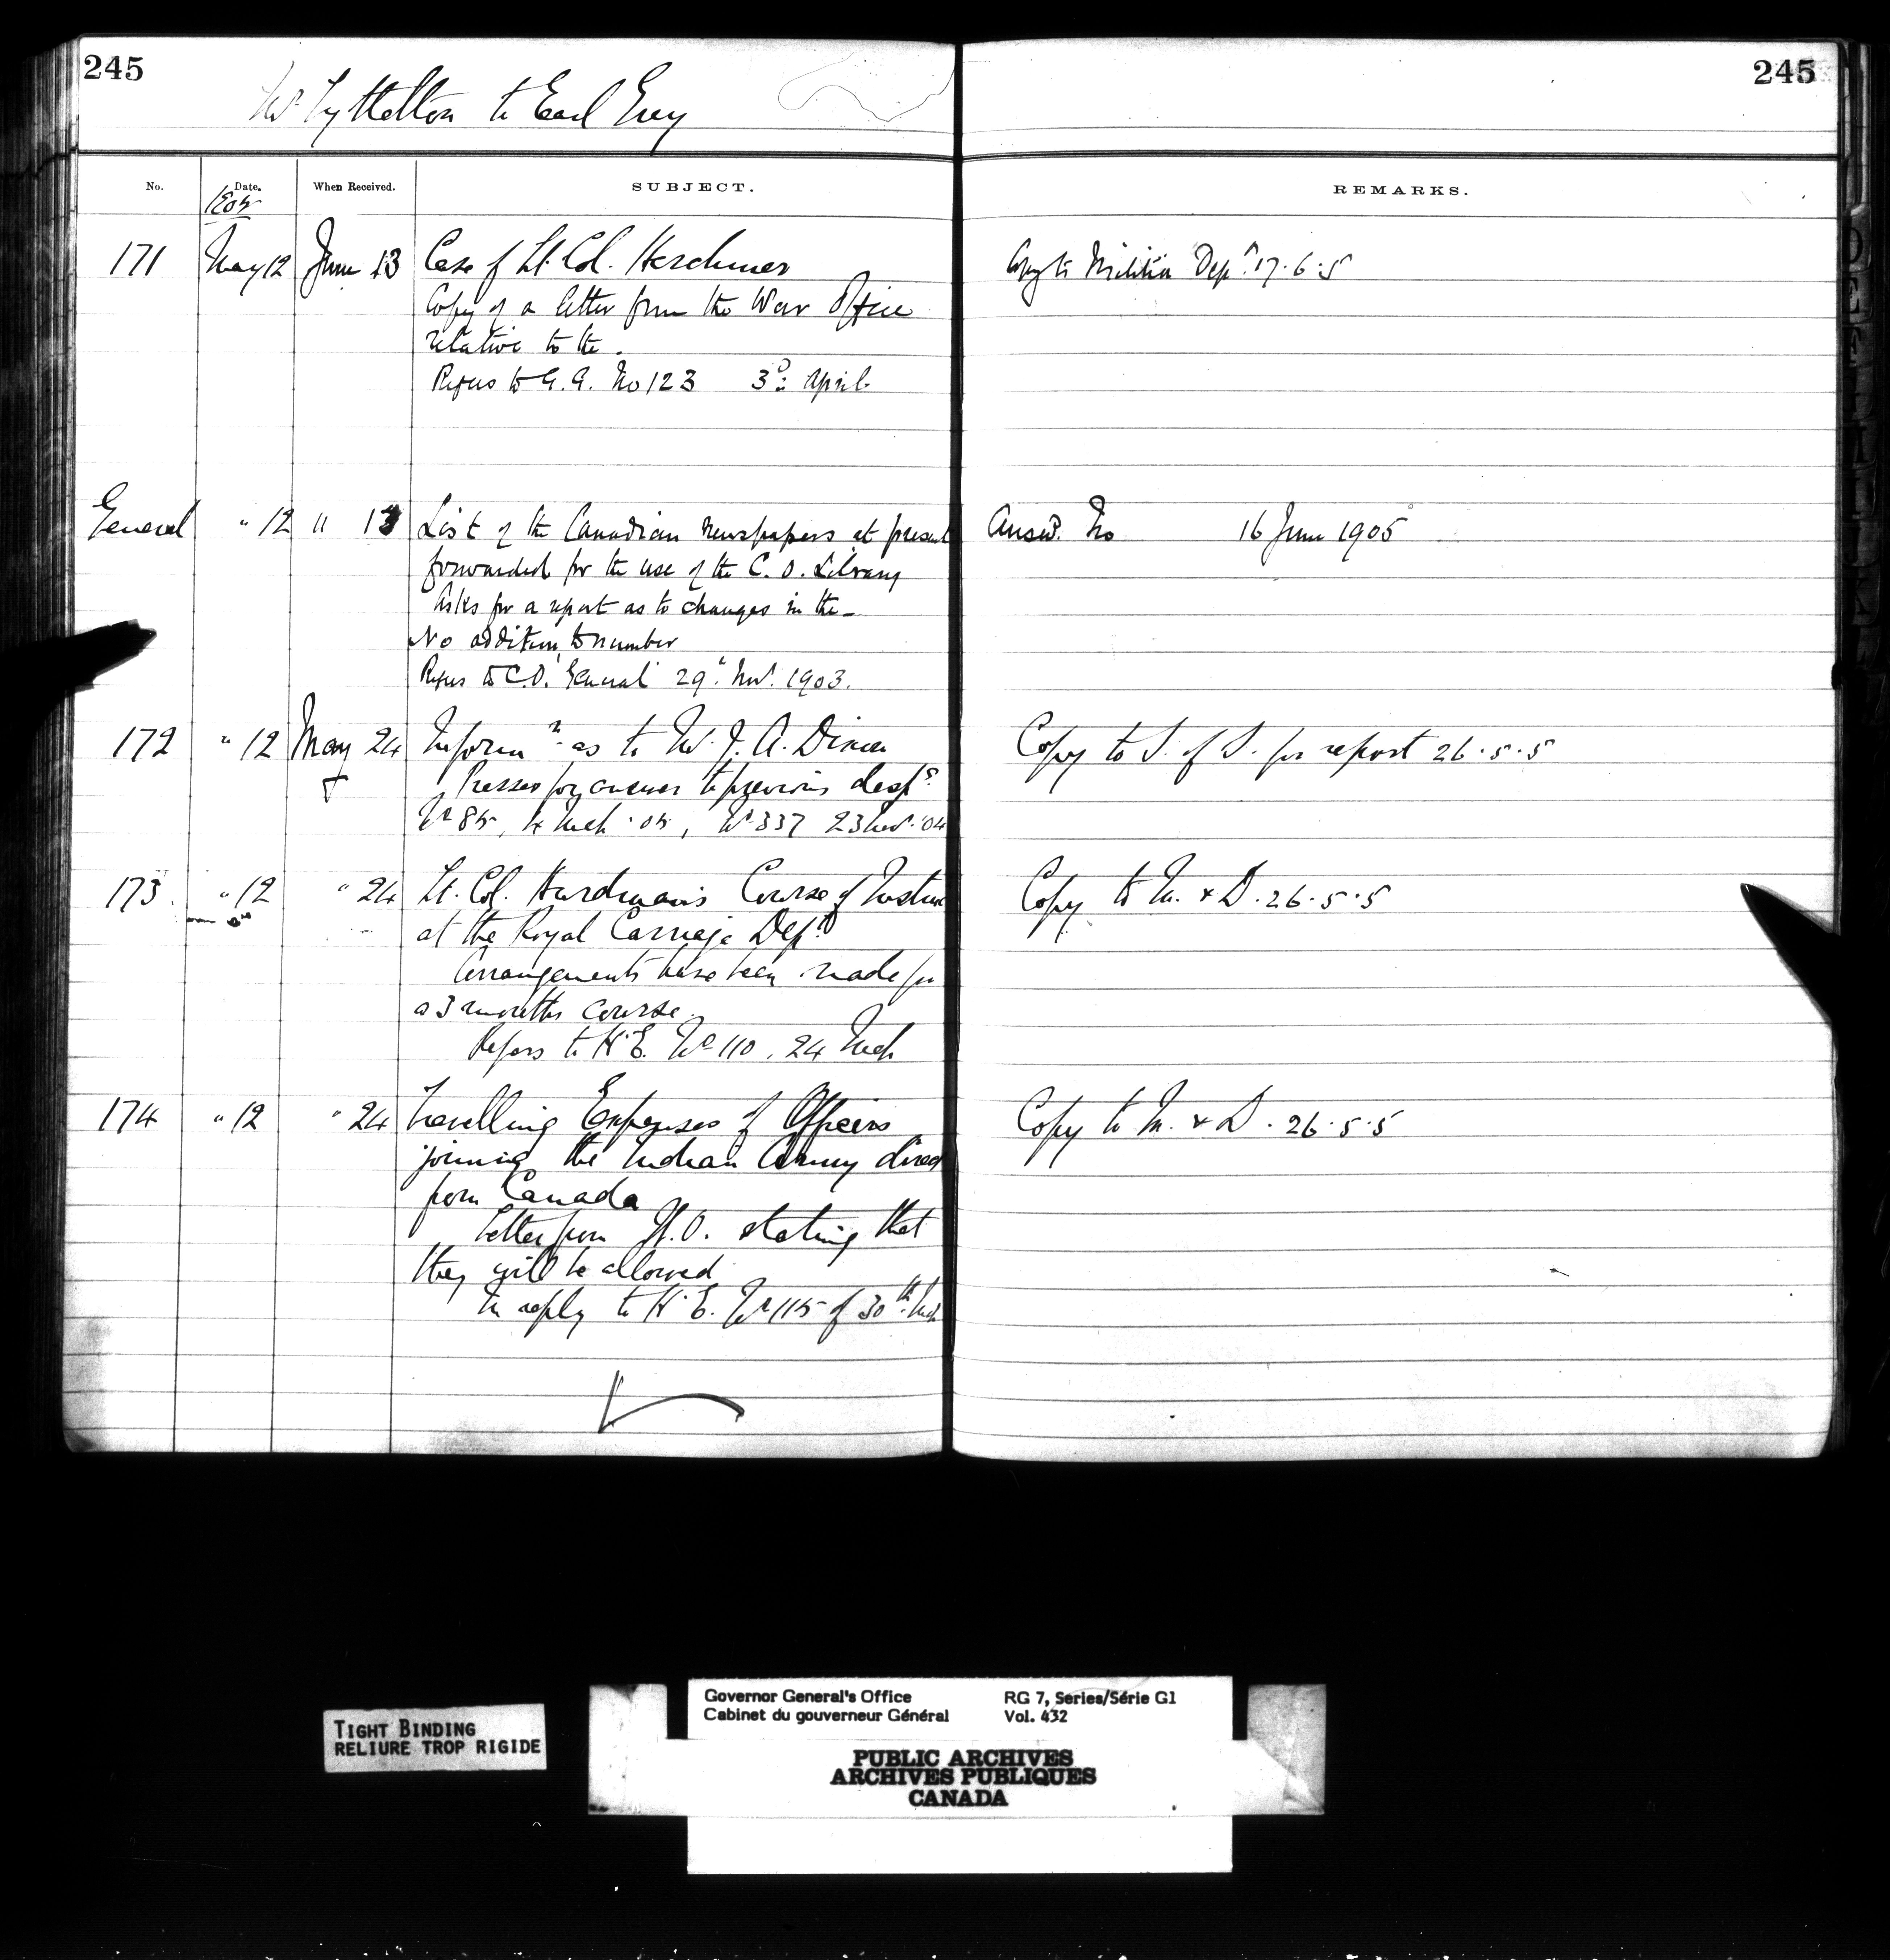 245
245
Mr Lyttelton to Earl Grey
No.
Date.
When Received.
SUBJECT.
REMARKS.
1905
171 May 12 June 13 Case of Lt. Col. Herchmer
Copy to Militia Dept. 17.6.5
Copy of a letter from the War Office
relative to the.
Refers to G.G. No 123 3d April
General " 12 " 13 List of the Canadian Newspapers at present
Ansd. No 16 June 1905
forwarded for the use of the C.O. Library
Asks for a report as to changes in the
No addition to number
Refers to C.O. General 29" Nov. 1903.
172 " 12 May 24 Informn as to Mr. J. A. Dixon
Copy to S. of S. for report 26.5.5
Presses for answer to previous desps.
No 85, 4 Mch '05, No 337 23 Nov. '04
173. " 12 " 24 Lt. Col. Hurdman's Course of
Copy to M. & D. 26.5.5
at the Royal Carriage Dept.
Arrangements have been made for
a 3 months course.
Refers to H.E. No 110, 24 Mch
174 " 12 " 24 Travelling Expenses of Officers
Copy to M. & D. 26.5.5
joining the Indian Army direct
from Canada
Letter from W.O. stating that
they will be allowed
In reply to H.E. No 115 of 30th Mch
TIGHT BINDING
RELIURE TROP RIGIDE
Governor General's Office
Cabinet du gouverneur Général
RG 7, Series/Série G1
Vol. 432
PUBLIC ARCHIVES
ARCHIVES PUBLIQUES
CANADA